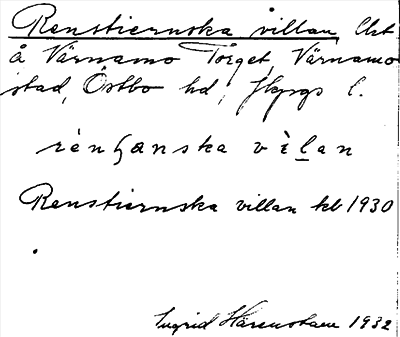 Renstiernska villan, Chst
å Värnamo Torget, Värnamo
stad, Östbo hd, Jkpgs l.
rènʃænska vɩ̀lan
Renstiernska villan kb 1930
Ingrid Härenstam 1932